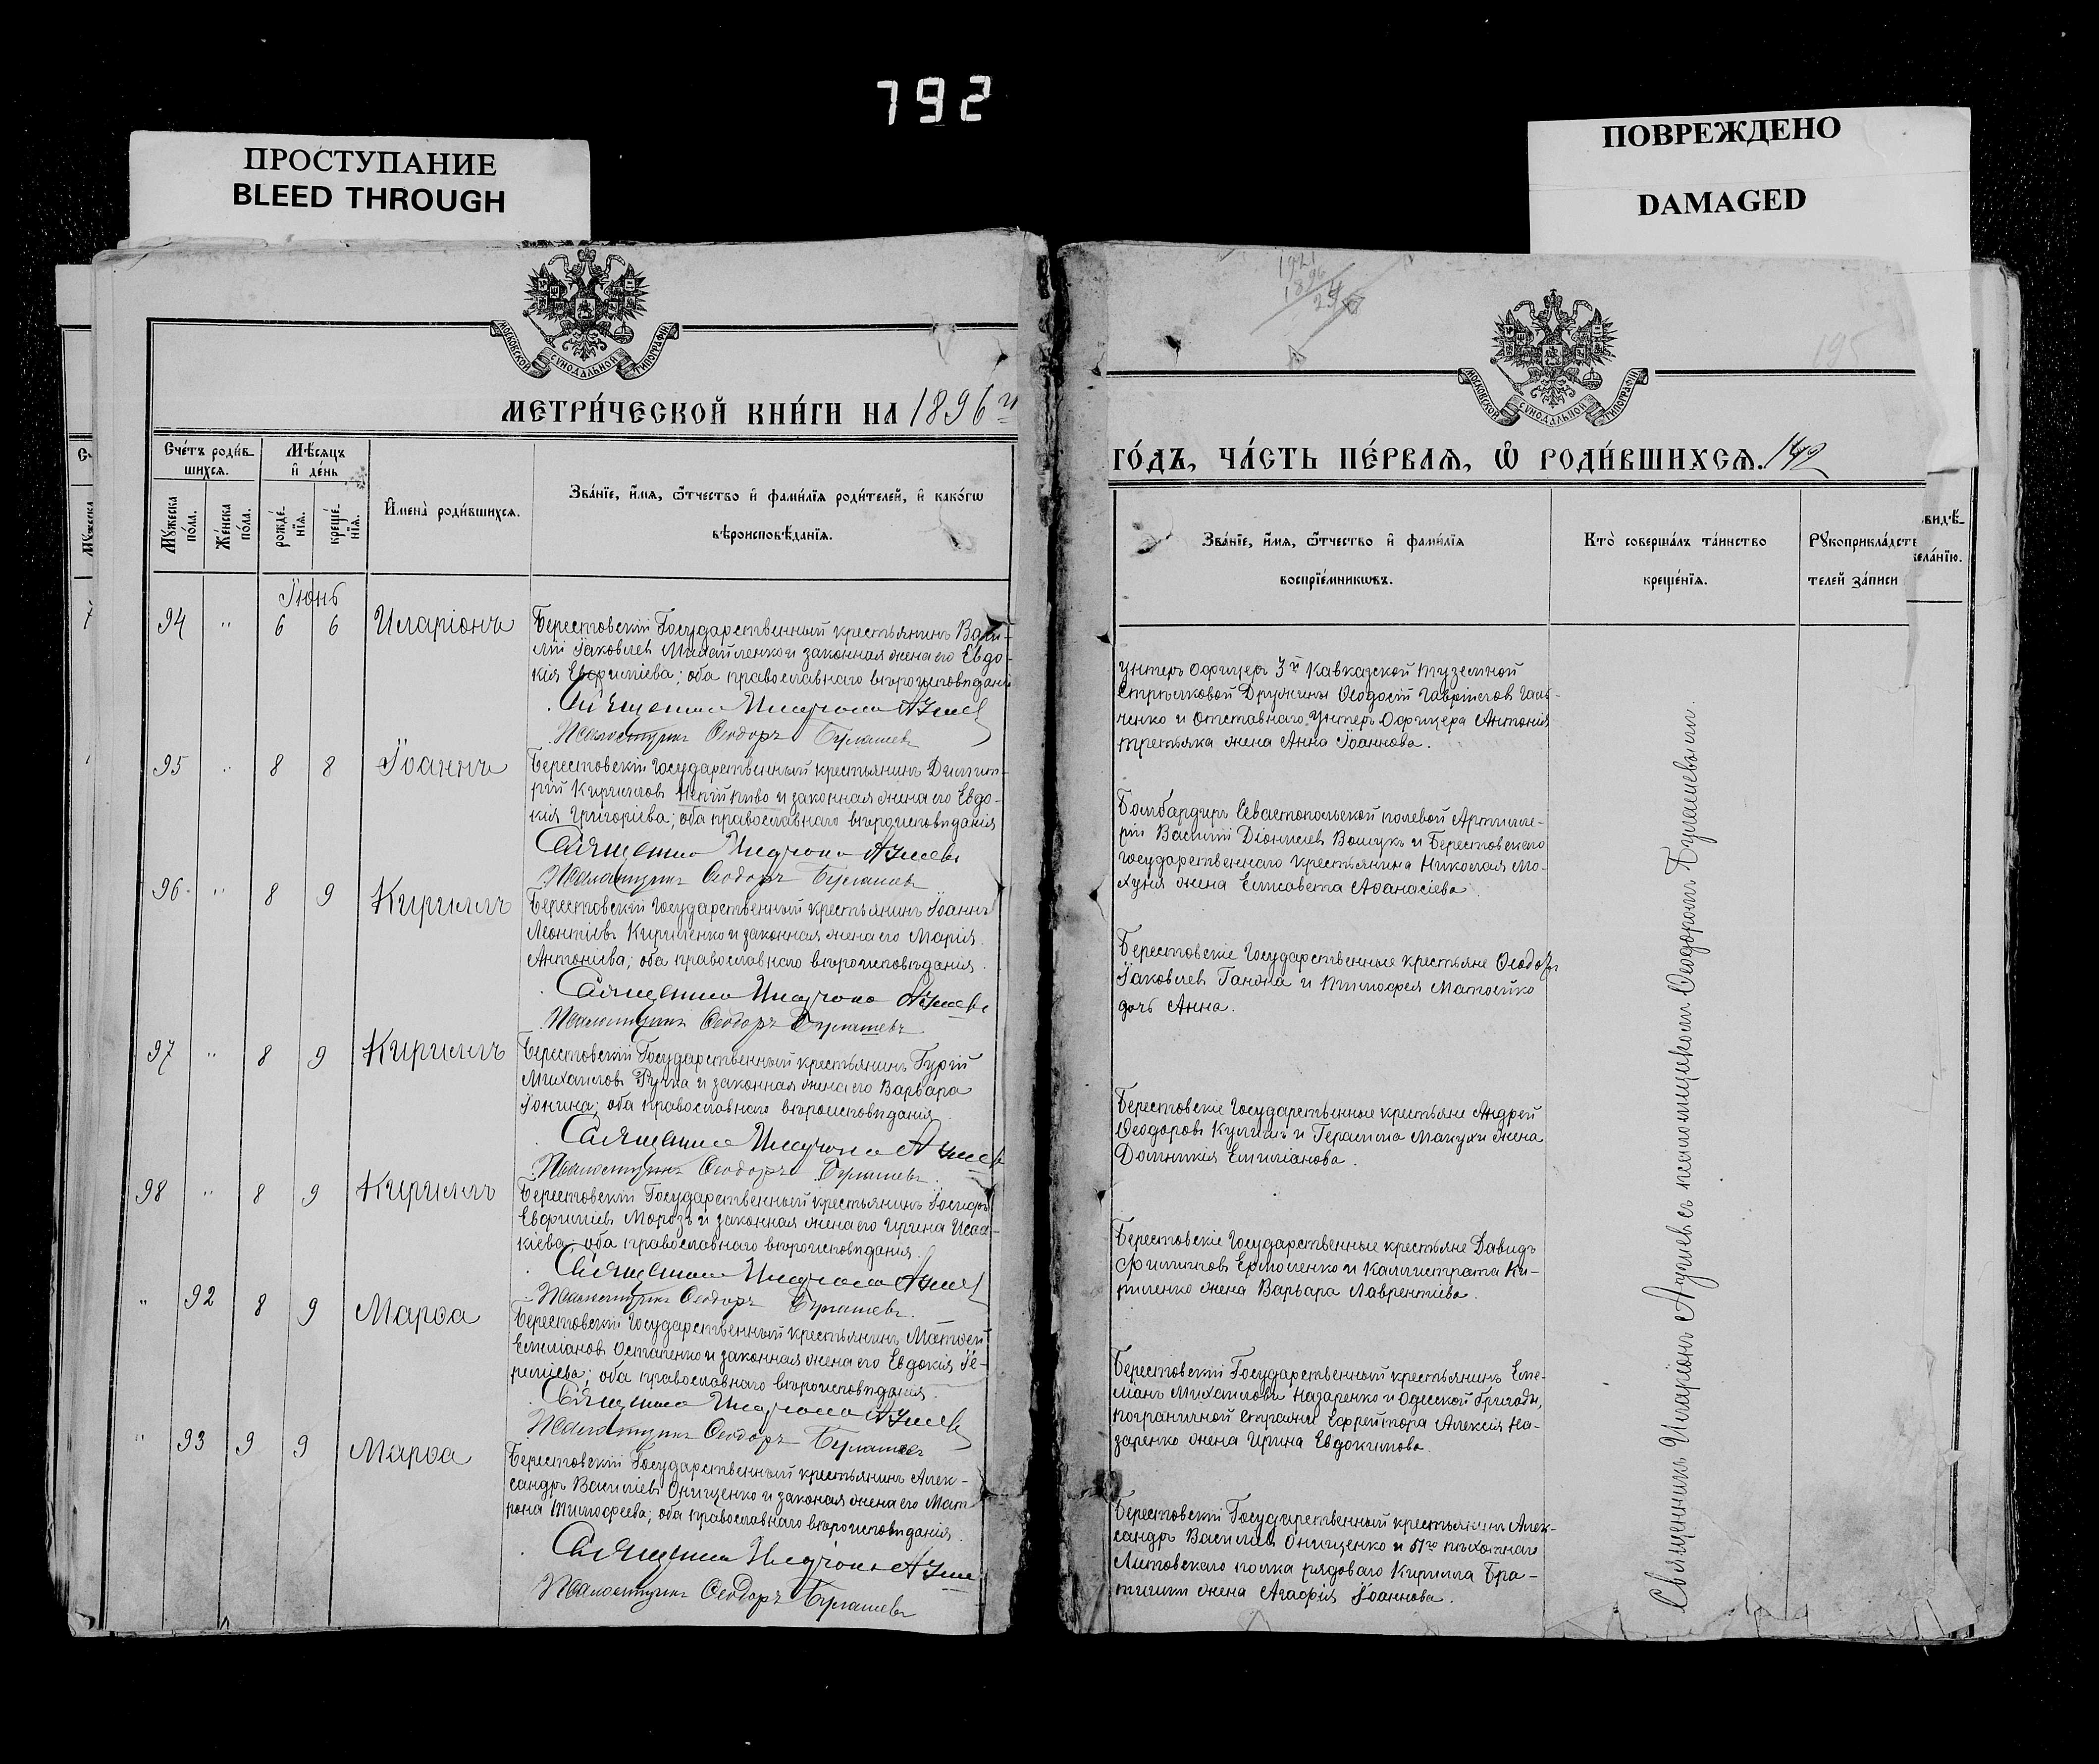 792
ПРОСТУПАНИЕ
BLEED THROUGH
ПОВРЕЖДЕНО
DAMAGED
МОСКОВСКОЙ СУНОДАЛЬНОЙ ТИПОГРАФІИ
МЕТРИ́ЧЕСКОЙ КНИ́ГИ НА 1896й
Сче́тъ роди́в-
шихся.
Мѣ́сяцъ
и҆ де́нь
Мꙋ́жеска по́ла.
Же́нска по́ла.
рожде́-
нїѧ.
креще́-
нїѧ.
И҆мена̀ роди́вшихсѧ.
Зва́нїе, и҆́мѧ, ѻ҆́тчество и҆ фами́лїѧ роди́телей, и҆ како́гѡ
вѣроисповѣ́данїѧ.
Іюнь
94 " 6 6 Иларіонъ
Берестовскій Государственный крестьянинъ Васи-
лій Іаковлевъ Михайленко и законная жена его Евдо-
кія Евфиміева; оба православнаго вѣроисповѣданія
Священникъ Иларіонъ Агиевъ
Псаломщикъ Ѳеодоръ Булашевъ
95 " 8 8 Іоаннъ
Берестовскій Государственный крестьянинъ Димит-
рій Кирилловъ и законная жена его Евдо-
кія Григоріева; оба православнаго вѣроисповѣданія
Священникъ Иларіонъ Агиевъ
Псаломщикъ Ѳеодоръ Булашевъ
96 " 8 9 Кириллъ
Берестовскій Государственный крестьянинъ Іоаннъ
Леонтіевъ Кириленко и законная жена его Марія
Антоніева; оба православнаго вѣроисповѣданія.
Священникъ Иларіонъ Агиевъ
Псаломщикъ Ѳеодоръ Булашевъ
97 " 8 9 Кириллъ
Берестовскій Государственный крестьянинъ Гурій
Михаиловъ и законная жена его Варвара
Іонина; оба православнаго вѣроисповѣданія
Священникъ Иларіонъ Агиевъ
Псаломщикъ Ѳеодоръ Булашевъ.
98 " 8 9 Кириллъ
Берестовскій Государственный крестьянинъ Іосифъ
Евфиміевъ Морозъ и законная жена его Ирина Исаа-
кіева; оба православнаго вѣроисповѣданія.
Священникъ Иларіонъ Агиевъ
Псаломщикъ Ѳеодоръ Булашевъ.
" 92 8 9 Марѳа
Берестовскій Государственный крестьянинъ Матѳей
Емиліановъ Остапенко и законная жена его Евдокія Іе-
реміева; оба православнаго вѣроисповѣданія.
Священникъ Иларіонъ Агиевъ
Псаломщикъ Ѳеодоръ Булашевъ
" 93 9 9 Марѳа
Берестовскій Государственный крестьянинъ Алек-
сандръ Василіевъ Онищенко и законая жена его Мат
рона Тимоѳеева; оба православнаго вѣроисповѣданія.
Священникъ Иларіонъ Агиевъ
Псаломщикъ Ѳеодоръ Булашевъ
1921
1896
25
195
МОСКОВСКОЙ СУНОДАЛЬНОЙ ТИПОГРАФІИ
ГО́ДЪ, ЧА́СТЬ ПЕ́РВАѦ, Ѡ҆ РОДИ́ВШИХСѦ. 142
Зва́нїе, и҆́мѧ, ѻ҆́тчество и҆ фами́лїѧ
воспрїе́мникѡвъ.
Кто̀ соверша́лъ та́инство
креще́нїѧ.
Рꙋкоприкла́дств
телей за́писи
видѣ́-
жела́нїю.
Унтеръ Офицеръ 3й Кавказской туземной
Стрѣлковой Дружины Ѳеодосій Гавріиловъ Гань-
ченко и Отставнаго Унтеръ Офицера Антонія
Третьяка жена Анна Іоаннова.
Бомбардиръ Севастопольской полевой Артилле-
ріи Василій Діонисіевъ Вощукъ и Берестовскаго
Государственнаго Крестьянина Николая Мо-
хуня жена Елисавета Аѳанасіева
Берестовскіе Государственные крестьяне Ѳеодоръ
Іаковлевъ Ганжа и Тимоѳея Матвейко
дочь Анна.
Берестовскіе Государственные крестьяне Андрей
Ѳеодоровъ Кулишъ и Герасима Макухи жена
Домникія Емиліанова.
Берестовскіе Государственные крестьяне Давидъ
Филипповъ Ермоленко и Каллистрата Ки-
риленко жена Варвара Лаврентіева.
Берестовскій Государственный крестьянинъ Еме-
ліанъ Михаиловъ Назаренко и Одесской бригады,
пограничной стражи Ефрейтора Алексія На-
заренко жена Ирина Евдокимова.
Берестовскій Государственный крестьянинъ Алек-
сандръ Василіевъ Онищенко и 51го пѣхотнаго
Литовскаго полка рядоваго Кирилла Бра-
жена Агаѳія Іоаннова.
Священникъ Иларіонъ Агиевъ съ псаломщикомъ Ѳеодоромъ Булашевымъ.